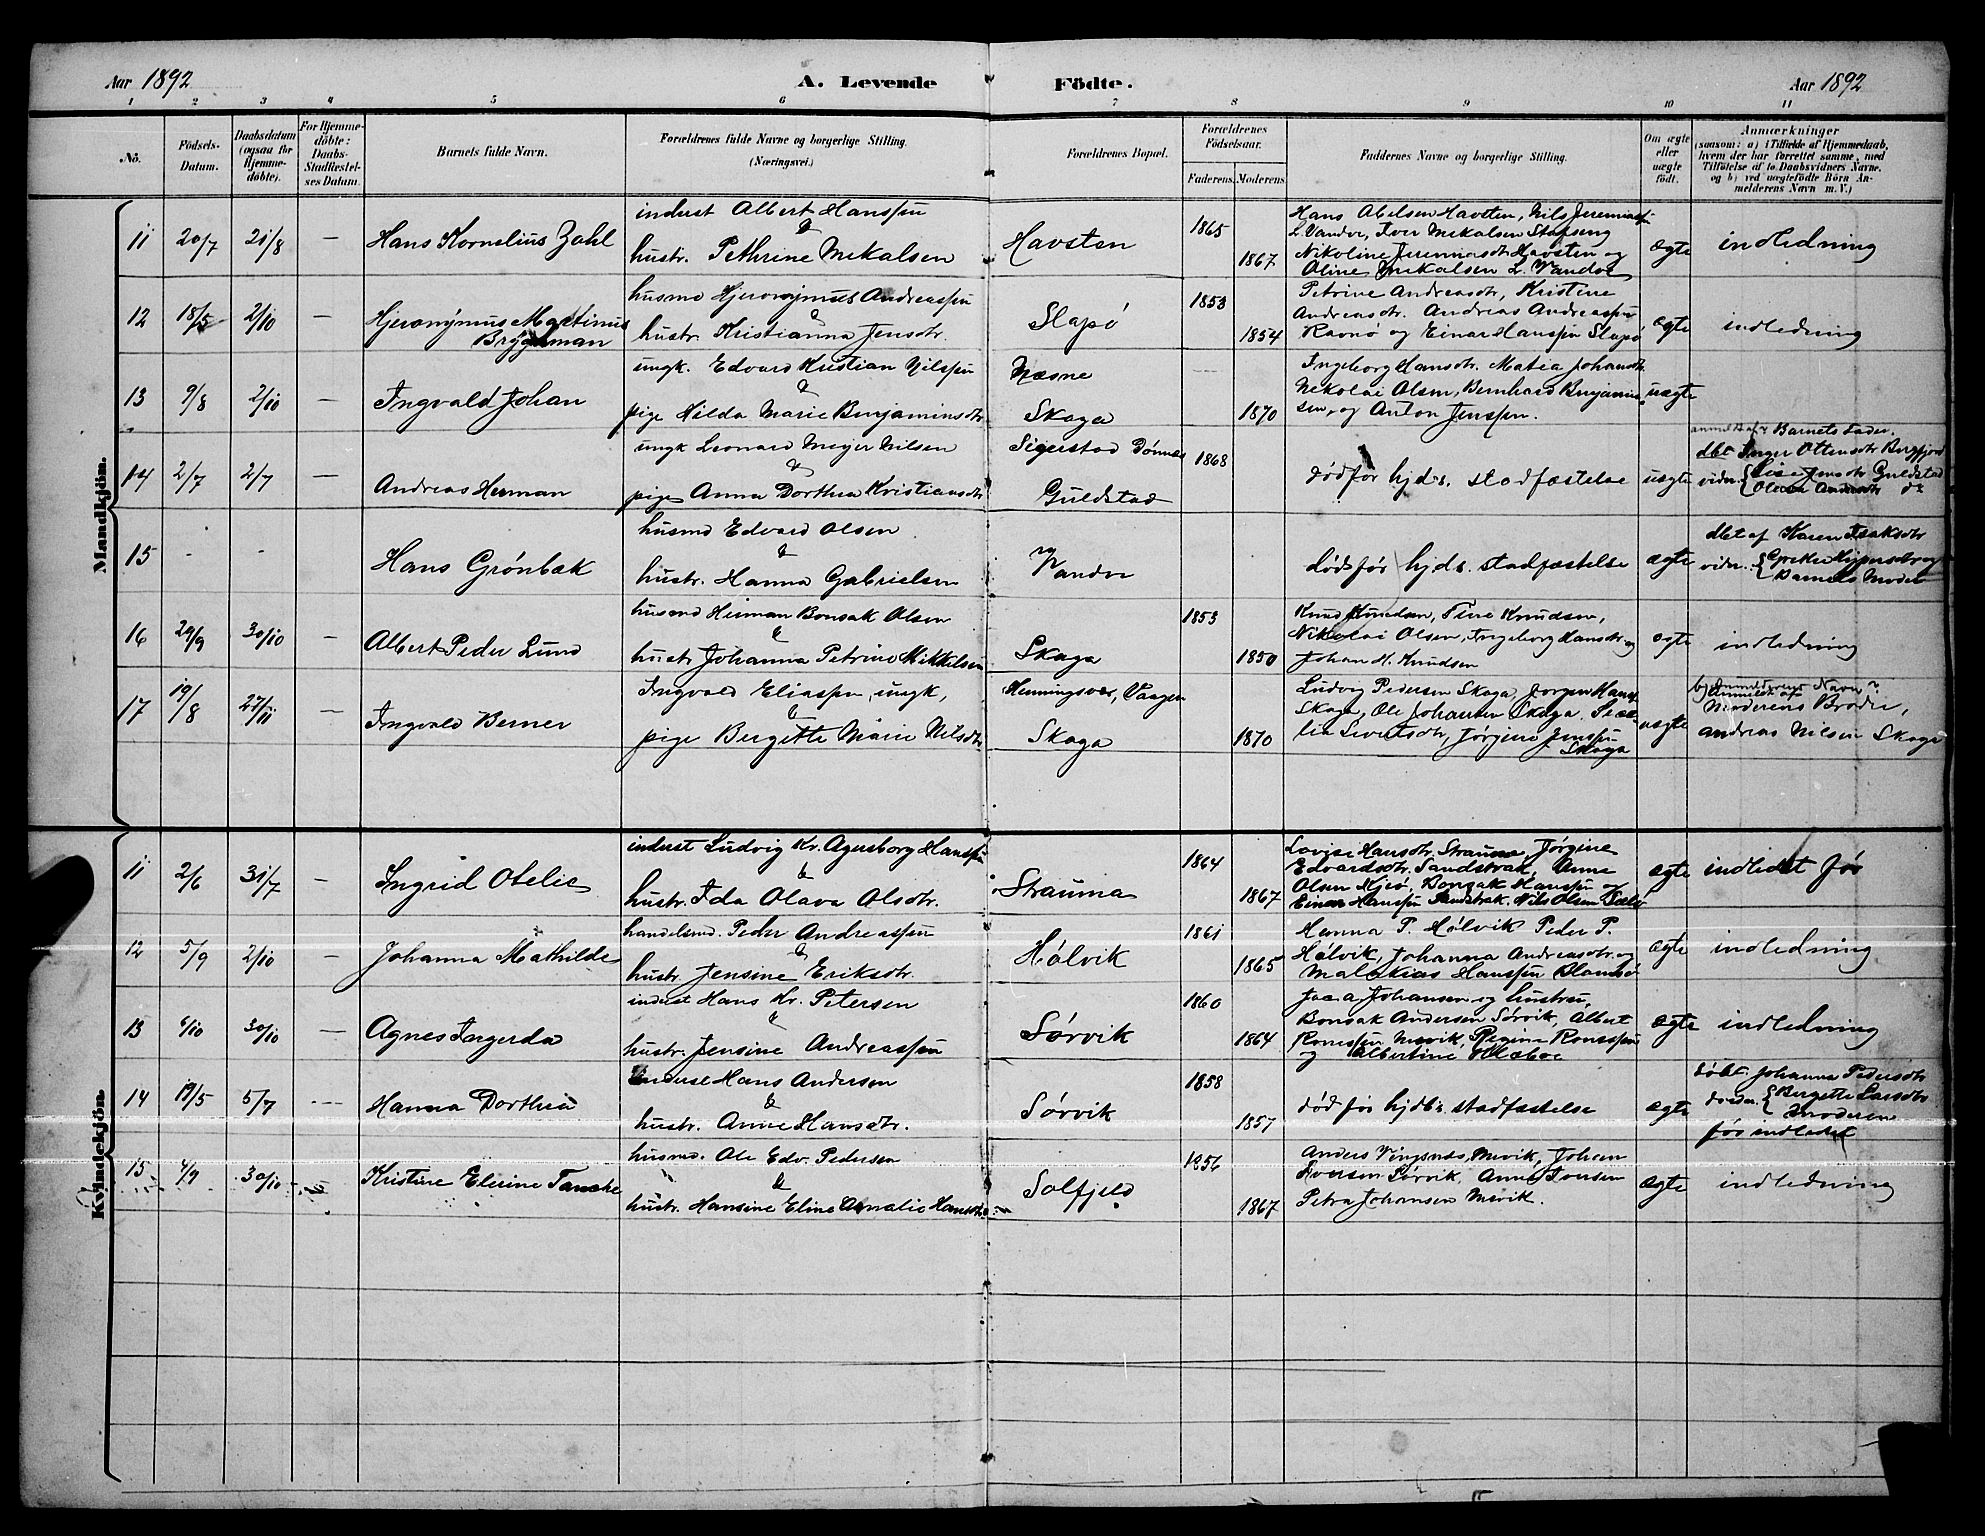 Aar 1892 A. Levende Fødte. Aar 1892
1 2 3 4 5 6 7 8 9 10 11
No.
Födsels-Datum.
Daabsdatum (ogsaa for Hjemme-døbte).
For Hjemme-döbte: Daabs-Stadfæstel-ses Datum.
Barnets fulde Navn.
Forældrenes fulde Navne og borgerlige Stilling. (Næringsvei.)
Forældrenes Bopæl.
Forældrenes Födselsaar.
Faderens. Moderens.
Faddernes Navne og borgerlige Stilling.
Om ægte eller uægte födt.
Anmærkninger
(saasom: a) i Tilfælde af Hjemmedaab, hvem der har forrettet samme, med Tilföielse af to Daabsvidners Navne, og b) ved uægtefödte Börn An-melderens Navn m. V.)
Mandkjön.
11 20/7 21/8 — Hans Kornelius Zahl
inderst Albert Hanssen
&
hustr. Pethrine Mekalsen
Havsten
1865
1867
Hans Abelsen Havsten, Nils Jeremiass.
L. Vandve, Iver Mekalsen Stafseng
Nikoline Jeremiasdtr Havsten og
Oline Mekalsen L. Vandve
ægte indledning
12 18/5 2/10 — Hjeronymus Martinus
Bryggman
husmd Hjeronymus Andreassen
&
hustr. Kristianna Jensdtr.
Slapø
1853
1854
Petrine Andreasdtr, Kristine
Andreasdtr. Andreas Andreassen
Ravnø og Einar Hanssen Slapø
ægte indledning
13 9/8 2/10 — Ingvald Johan
ungk. Edvard Kristian Nilssen
&
pige Hilda Marie Benjaminsdtr
Næsne
Skaga
1870
Ingeborg Hansdtr. Matea Johansdtr.
Nekolai Olsen, Bernhard Benjamin-
sen, og Anton Jenssen.
uægte
14 2/7 2/7 — Andreas Herman
ungk Leonard Meyer Nilsen
&
pige Anna Dorthea Kristiansdtr
Sigerstad Dønnes
Guldstad
1868
død før hjds. stadfæstelse
uægte
anmeldt af Barnets Fader.
dbt Inger Ottensdtr Bergfjord
vidn. { Lise Jensdtr Guldstad
Andersdtr
15 - - Hans Grønbæk
husmd Edvard Olsen
&
hustr. Hanna Gabrielsen
Vandve
død før hjds. stadfæstelse
ægte
dbt af Karen Isaksdtr
vidn. {
Barnets Moder
16 29/9 30/10 — Albert Peder Lund
husmd Heiman Bonsak Olsen
&
hustr Johanna Petrine Mikkelsen
Skaga
1853
1850
Knud Knudsen, Tine Knudsen,
Nikolai Olsen, Ingeborg Hansdtr og
Johan H. Knudsen
ægte indledning
17 19/8 27/11 Ingvald Berner
Ingvald Eliassen, ungk,
&
pige Bergitte Marie Nilsdtr
Henningsvær, Vaagen
Skaga
1870
Ludvig Pedersen Skaga, Jørgen Hanss.
Skaga, Ole Johansen Skaga,
Sivertsdtr, Jørgine Jenssen
Skaga
uægte
b) Anmelderens Navn:
Anmeldt af
Moderens Broder,
Andreas Nilsen Skaga
Kvindekjön.
11 2/6 31/7 — Ingrid Otelie
inderst Ludvig Kr. Agersborg Hanssen
&
hustr. Ida Olava Olsdtr.
Strauma
1864
1867
Lovise Hansdtr. Strauma, Jørgine
Edvardsdtr. Sandstrak, Anne
Olsen Hjiø, Bonsak Hanssen og
Einar Hanssen Sandstrak. Nils Olsen
ægte indledet før
12 5/9 2/10 — Johanna Mathilde
handelsmd. Peder Andreassen
&
hustr. Jensine Eriksdtr.
Hølvik
1861
1865
Hanna P. Hølvik Peder P.
Hølvik, Johanna Andreasdtr. og
Malakias Hanssen
ægte indledning
13 6/10 30/10 — Agnes Ingerda
inderst Hans Kr. Petersen
&
hustr. Jensine Andreassen
Sørvik
1860
1864
Johansen og hustru,
Bonsak Andersen Sørvik, Albert
Ronessen Mevik, Regine Ronessen
og Albertine
ægte indledning
14 19/5 5/7 --- Hanna Dorthea
inderst Hans Andersen
&
hustr. Anne Hansdtr.
Sørvik
1858
1857
død før hjdb's stadfæstelse
ægte
døbt. Johanna Pedersdtr
{ Bergitte Larsdtr
Moderen
før indledet
15 4/9 30/10 Kristine Elerine Tanche
husmd. Ole Edv. Pedersen
&
hustr. Hansine Eline Amalie Hansdtr.
Solfjeld
1856
1867
Anders Vingsnæs, Mevik, Johan
Iversen Sørvik, Anne Iversen
Petra Johansen Mevik.
ægte indledning